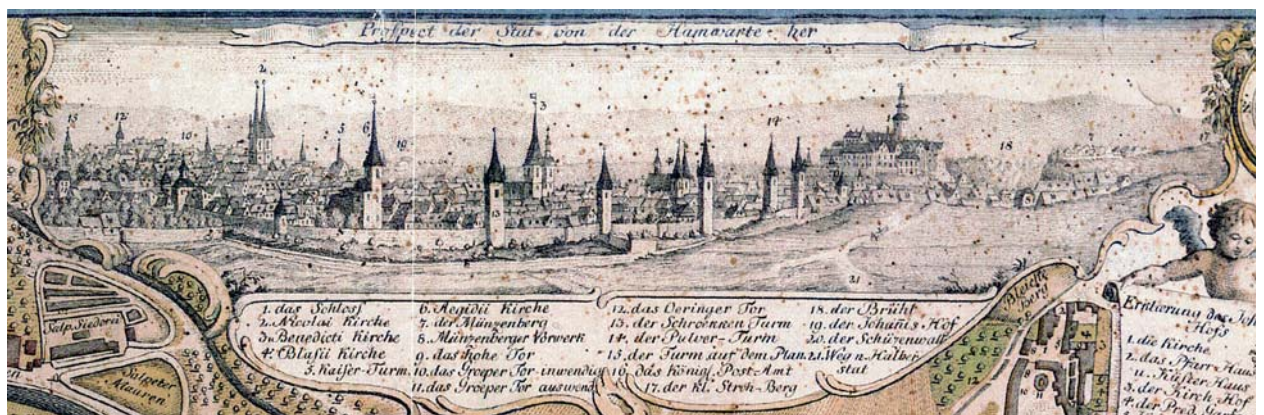 Prospect der Stat von der Hamwarte her
1. das Schloss
2. Nicolai Kirche
3. Benedicti Kirche
4. Blasii Kirche
5. Kaiser-Turm
6. Aegidii Kirche
7. der Münzenberg
8. Münzenberger Vorwerk
9. das hohe Tor
10. das Groeper Tor inwendig
11. das Groeper Tor auswend
12. das Oeringer Tor
13. der Schroenken Turm
14. der Pulver-Turm
15. der Turm auf dem Plan
16. das königl. Post-Amt
17. der kl. Stroh-Berg
18. der Brühl
19. der Johanis-Hof
20. der Schüzenwall
21. Weg n. Halber
stat
Salp. Siederei
Sülzeber
Mauren
Bleich
berg
Erklärung des Joh
Hofs
1. die Kirche
2. das Pfarr-Haus
u. Küster Haus
3. der Kirch-Hof
4. der